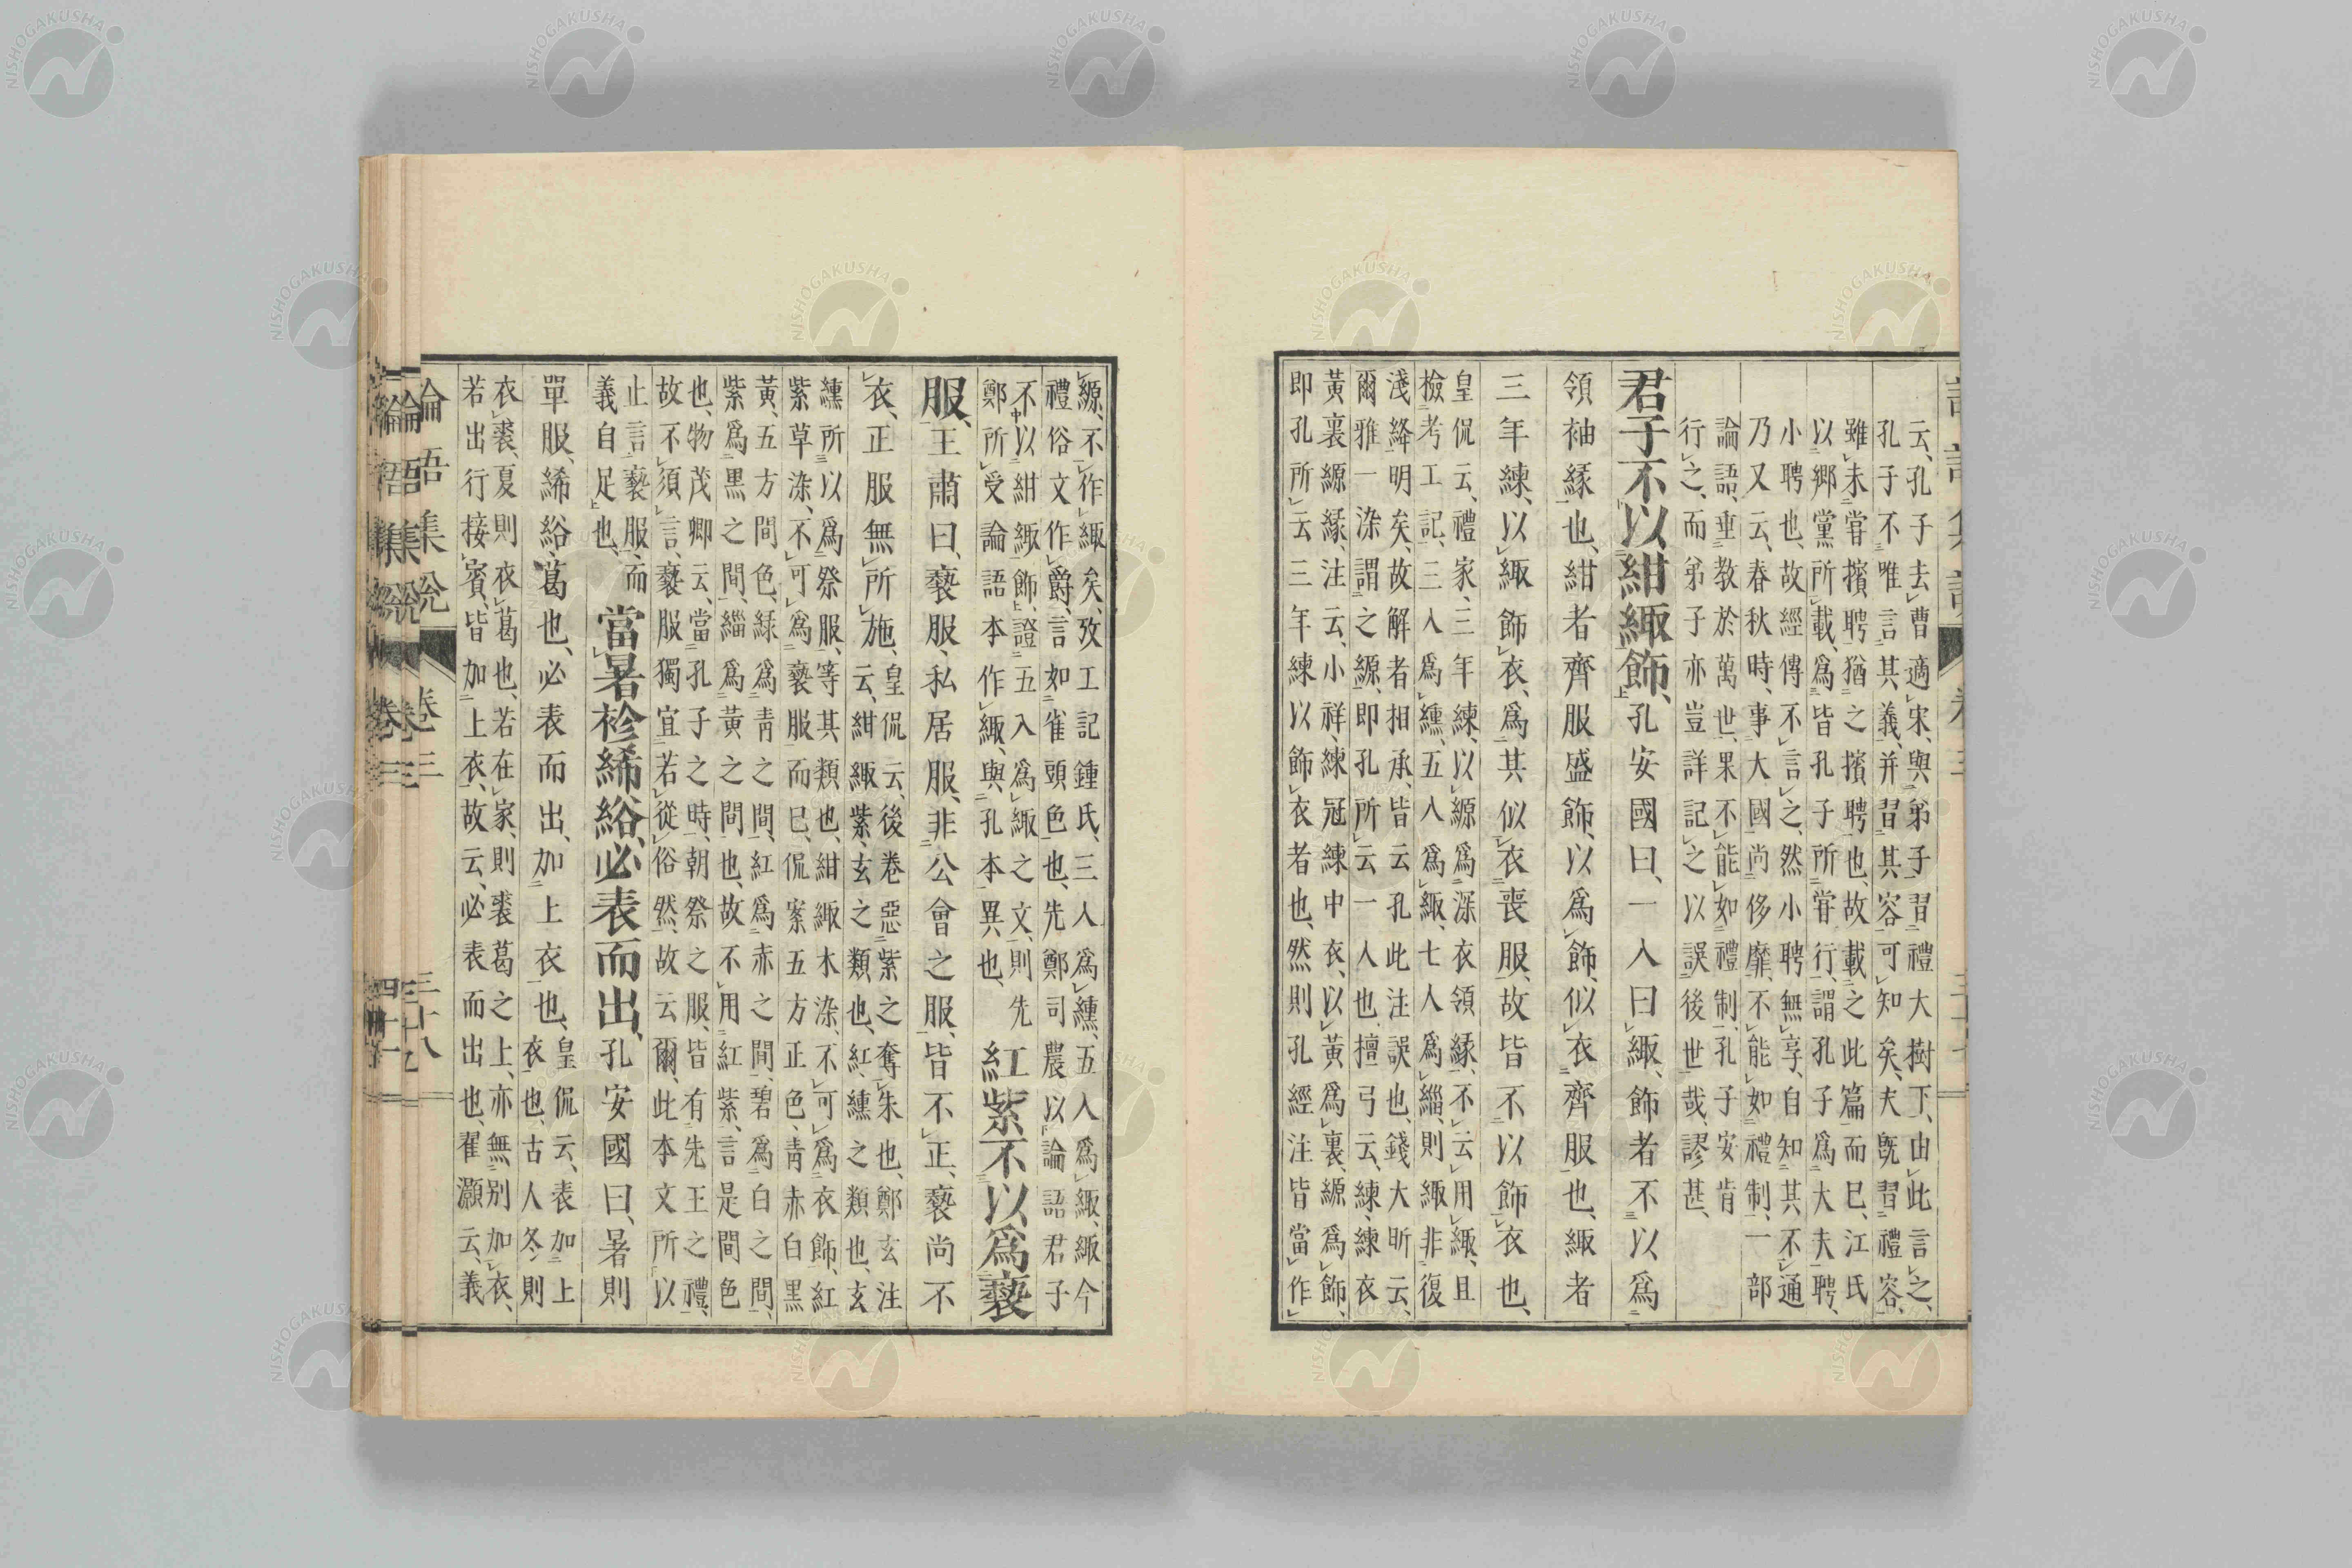 云、孔子去曹適宋、與弟子習禮大樹下、由此言之、
孔子不唯言其義、并習其容可知矣、夫既習禮容、
雖未甞擯聘、猶之擯聘也、故載之此篇而已、江氏
以鄉黨所載、爲皆孔子所甞行、謂孔子爲大夫聘、
小聘也、故經傳不言之、然小聘無享、自知其不通
乃又云、春秋時、事大國尚侈靡、不能如禮制、一部
論語、垂教於萬世、果不能如禮制、孔子安肯
行之、而弟子亦豈詳記之以誤後世哉、謬甚、
君子不以紺緅飾、孔安國曰、一入曰緅、飾者不以爲
領袖緣也、紺者齊服盛飾、以爲飾、似衣齊服也、緅者
三年練、以緅飾衣、爲其似衣喪服、故皆不以飾衣也、
皇侃云、禮家、三年練、以縓爲深衣領緣、不云用緅、且
檢考工記、三入爲纁、五入爲緅、七入爲緇、則緅非復
淺絳明矣、故解者相承、皆云孔此注誤也、錢大昕云、
爾雅一染謂之縓、即孔所云一入也、檀弓云、練、練衣
黃裏縓緣、注云、小祥、練冠練中衣、以黃爲裏、縓爲飾、
即孔所云三年練以飾衣者也、然則孔經注皆當作
縓、不作緅矣、攷工記鍾氏、三入爲纁、五入爲緅、緅今
禮俗文作爵、言如雀頭色也、先鄭司農以論語君子
不以紺緅飾、證五入爲緅之文、則先
鄭所受論語本作緅、與孔本異也、
紅紫不以爲褻
服、王肅曰、褻服、私居服、非公會之服、皆不正、褻尚不
衣、正服無所施、
皇侃云、後卷惡紫之奪朱也、鄭玄注
云、紺緅紫、玄之類也、紅纁之類也、玄
纁所以爲祭服、等其類也、紺緅木染、不可爲衣飾、紅
紫草染、不可爲褻服而已、侃案五方正色、青赤白黑
黃、五方間色、綠爲青之間、紅爲赤之間、碧爲白之間、
紫爲黑之間、緇爲黃之間也、故不用紅紫、言是間色
也、物茂卿云、當孔子之時、朝祭之服、皆有先王之禮、
故不須言、褻服獨宜若從俗然、故云爾、此本文所以
止言褻服、而
義自足也、
當暑袗絺綌、必表而出、孔安國曰、暑則
單服、絺綌、葛也、必表而出、加上衣也、
皇侃云、表加上
衣也、古人冬則
衣裘、夏則衣葛也、若在家、則裘葛之上、亦無別加衣、
若出行接賓、皆加上衣、故云、必表而出也、翟灝云、義
論語集說
卷三
三十八